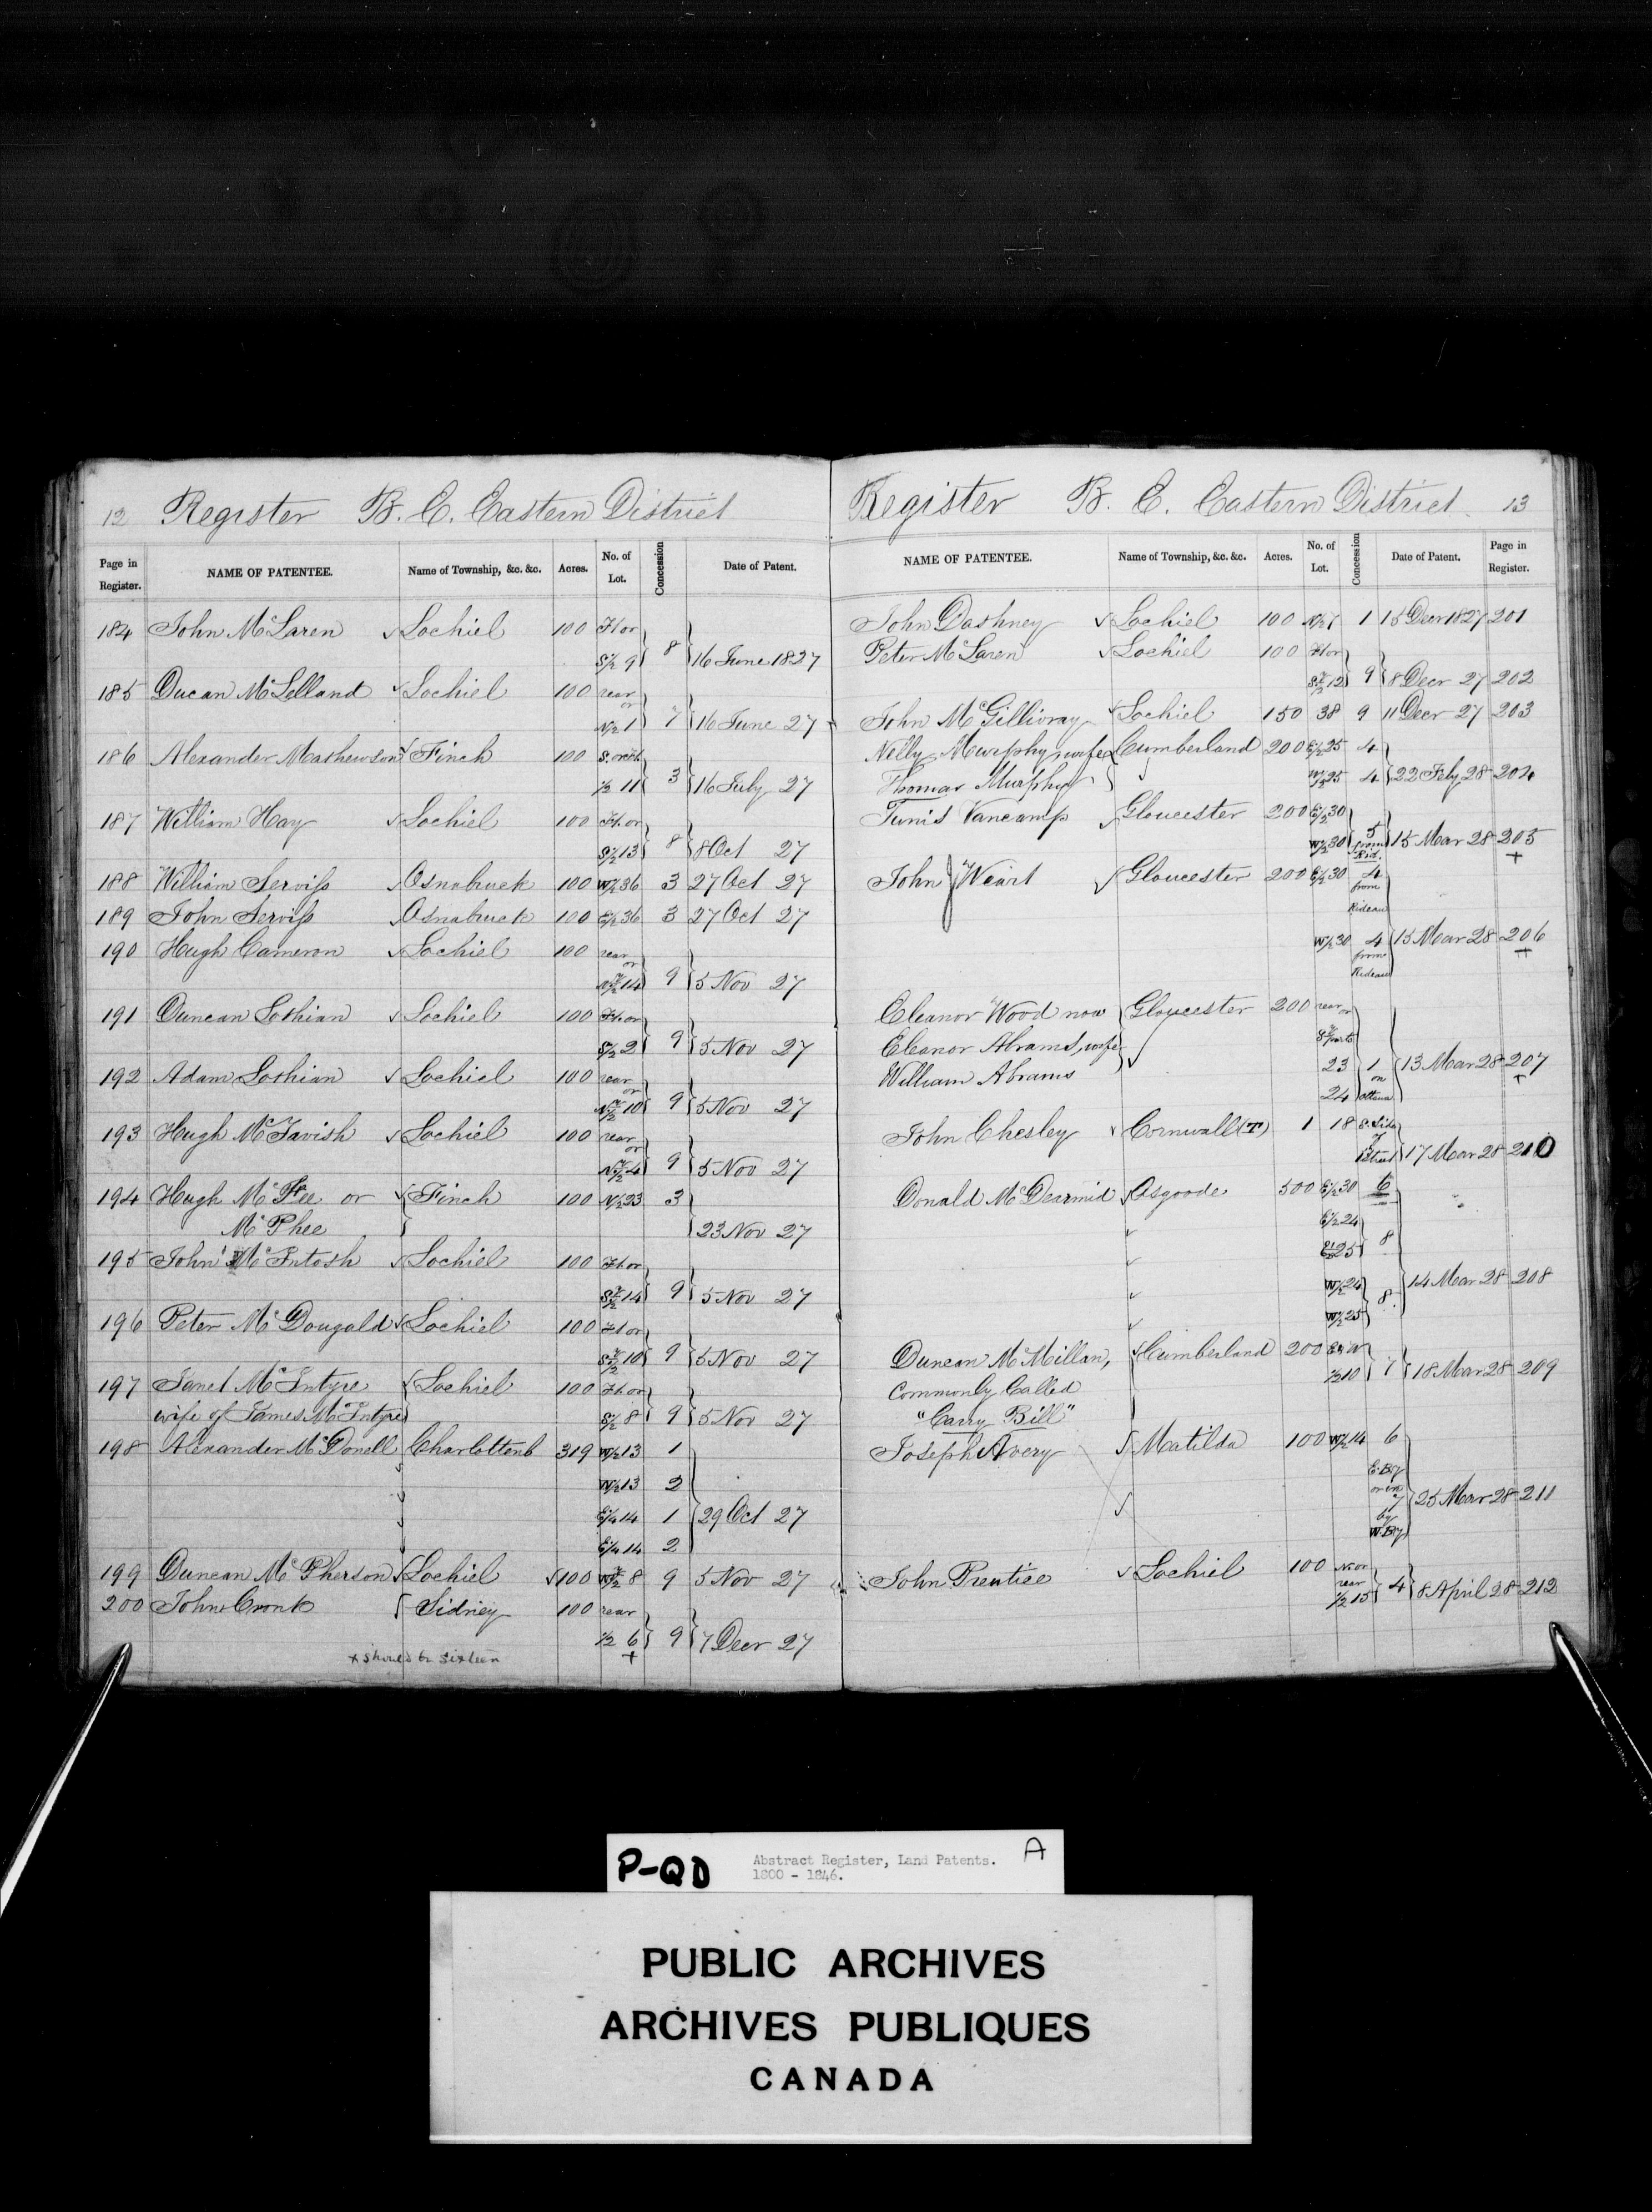 12 Register B. C. Eastern District
Page in Register. NAME OF PATENTEE. Name of Township, &c. &c. Acres. No. of Lot. Concession Date of Patent.
184 John McLaren Lochiel 100 Ft or
S½ 9 8 16 June 1827
185 Ducan McLelland Lochiel 100 rear or
N½ 1 7 16 June 27
186 Alexander Mathewson Finch 100 S. or Ft
½ 11 3 16 July 27
187 William Hay Lochiel 100 Ft. or
S½ 13 8 8 Oct 27
188 William Serviss Osnabruck 100 W½ 36 3 27 Oct 27
189 John Serviss Osnabruck 100 E½ 36 3 27 Oct 27
190 Hugh Cameron Lochiel 100 rear or
N½ 14 9 5 Nov 27
191 Duncan Lothian Lochiel 100 Ft. or
S½ 2 9 5 Nov 27
192 Adam Lothian Lochiel 100 rear or
N½ 10 9 5 Nov 27
193 Hugh McTavish Lochiel 100 rear or
N½ 4 9 5 Nov 27
194 Hugh McFee or Finch 100 N½ 23 3
McPhee 23 Nov 27
195 John McIntosh Lochiel 100 Ft. or
S½ 14 9 5 Nov 27
196 Peter McDougald Lochiel 100 Ft or
S½ 10 9 5 Nov 27
197 Janet McIntyre Lochiel 100 Ft. or
wife of James McIntyre S½ 8 9 5 Nov 27
198 Alexander McDonell Charlottenb 319 W½ 13 1
W½ 13 2
E¼ 14 1 29 Oct 27
E¼ 14 2
199 Duncan McPherson Lochiel 100 W½ 8 9 5 Nov 27
200 John Cronk Sidney 100 rear
½ 6 9 7 Decr 27
+
+ should be sixteen
Register B. C. Eastern District 13
NAME OF PATENTEE. Name of Township, &c. &c. Acres. No. of Lot. Concession Date of Patent. Page in Register.
John Dashney Lochiel 100 N½ 7 1 15 Decr 1827 201
Peter McLaren Lochiel 100 Ft or
S½ 12 9 8 Decr 27 202
John McGillivray Lochiel 150 38 9 11 Decr 27 203
Nelly Murphy, wife Cumberland 200 E½ 25 4
Thomas Murphy W½ 25 4 22 Feby 28 204
Tunis Vancamp Gloucester 200 E½ 30
W½ 30 5 from Rid. 15 Mar 28 205
+
John Weart Gloucester 200 E½ 30 4
from
Rideau
W½ 30 4 15 Mar 28 206
from +
Rideau
Eleanor Wood now Gloucester 200 rear or
Eleanor Abrams, wife S. parts
William Abrams 23 1 13 Mar 28 207
on +
24 Ottawa
John Chesley Cornwall (T) 1 18 S. Side
of
1 Street 17 Mar 28 210
Donald McDearmid Osgoode 500 E½ 30 6
E½ 24
E½ 25 8
W½ 24 14 Mar 28 208
8
W½ 25
Duncan McMillan, Cumberland 200 E & W
½ 10 7 18 Mar 28 209
Commonly Called
"Carry Bill"
Joseph Avery Matilda 100 W½ 14 6
E. Bdy
or in
7 25 Mar 28 211
by
W. Bdy
John Prentice Lochiel 100 N. or
rear
½ 15 4 8 April 28 212
P-QD Abstract Register, Land Patents. A
1800 - 1846.
PUBLIC ARCHIVES
ARCHIVES PUBLIQUES
CANADA